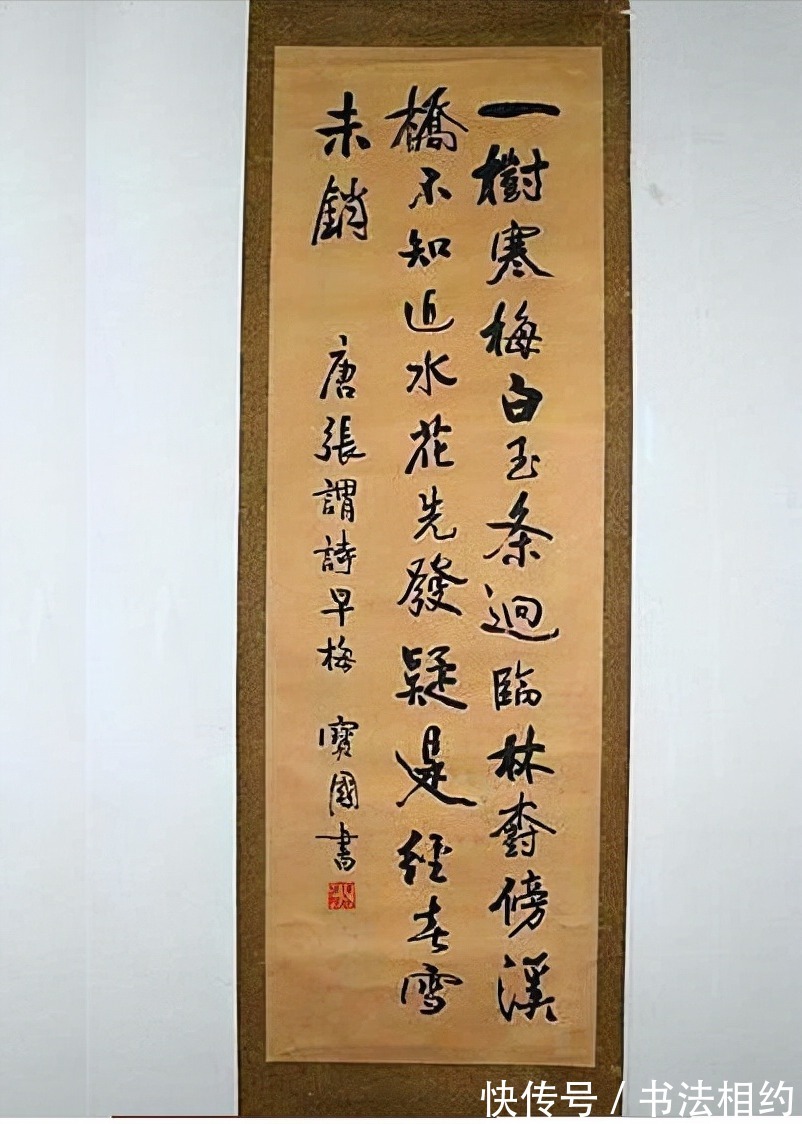 一樹寒梅白玉条迥臨林村傍溪
橋不知近水花先發疑是經春雪
未銷 唐張謂詩早梅 寶國書
快传号 / 书法相约